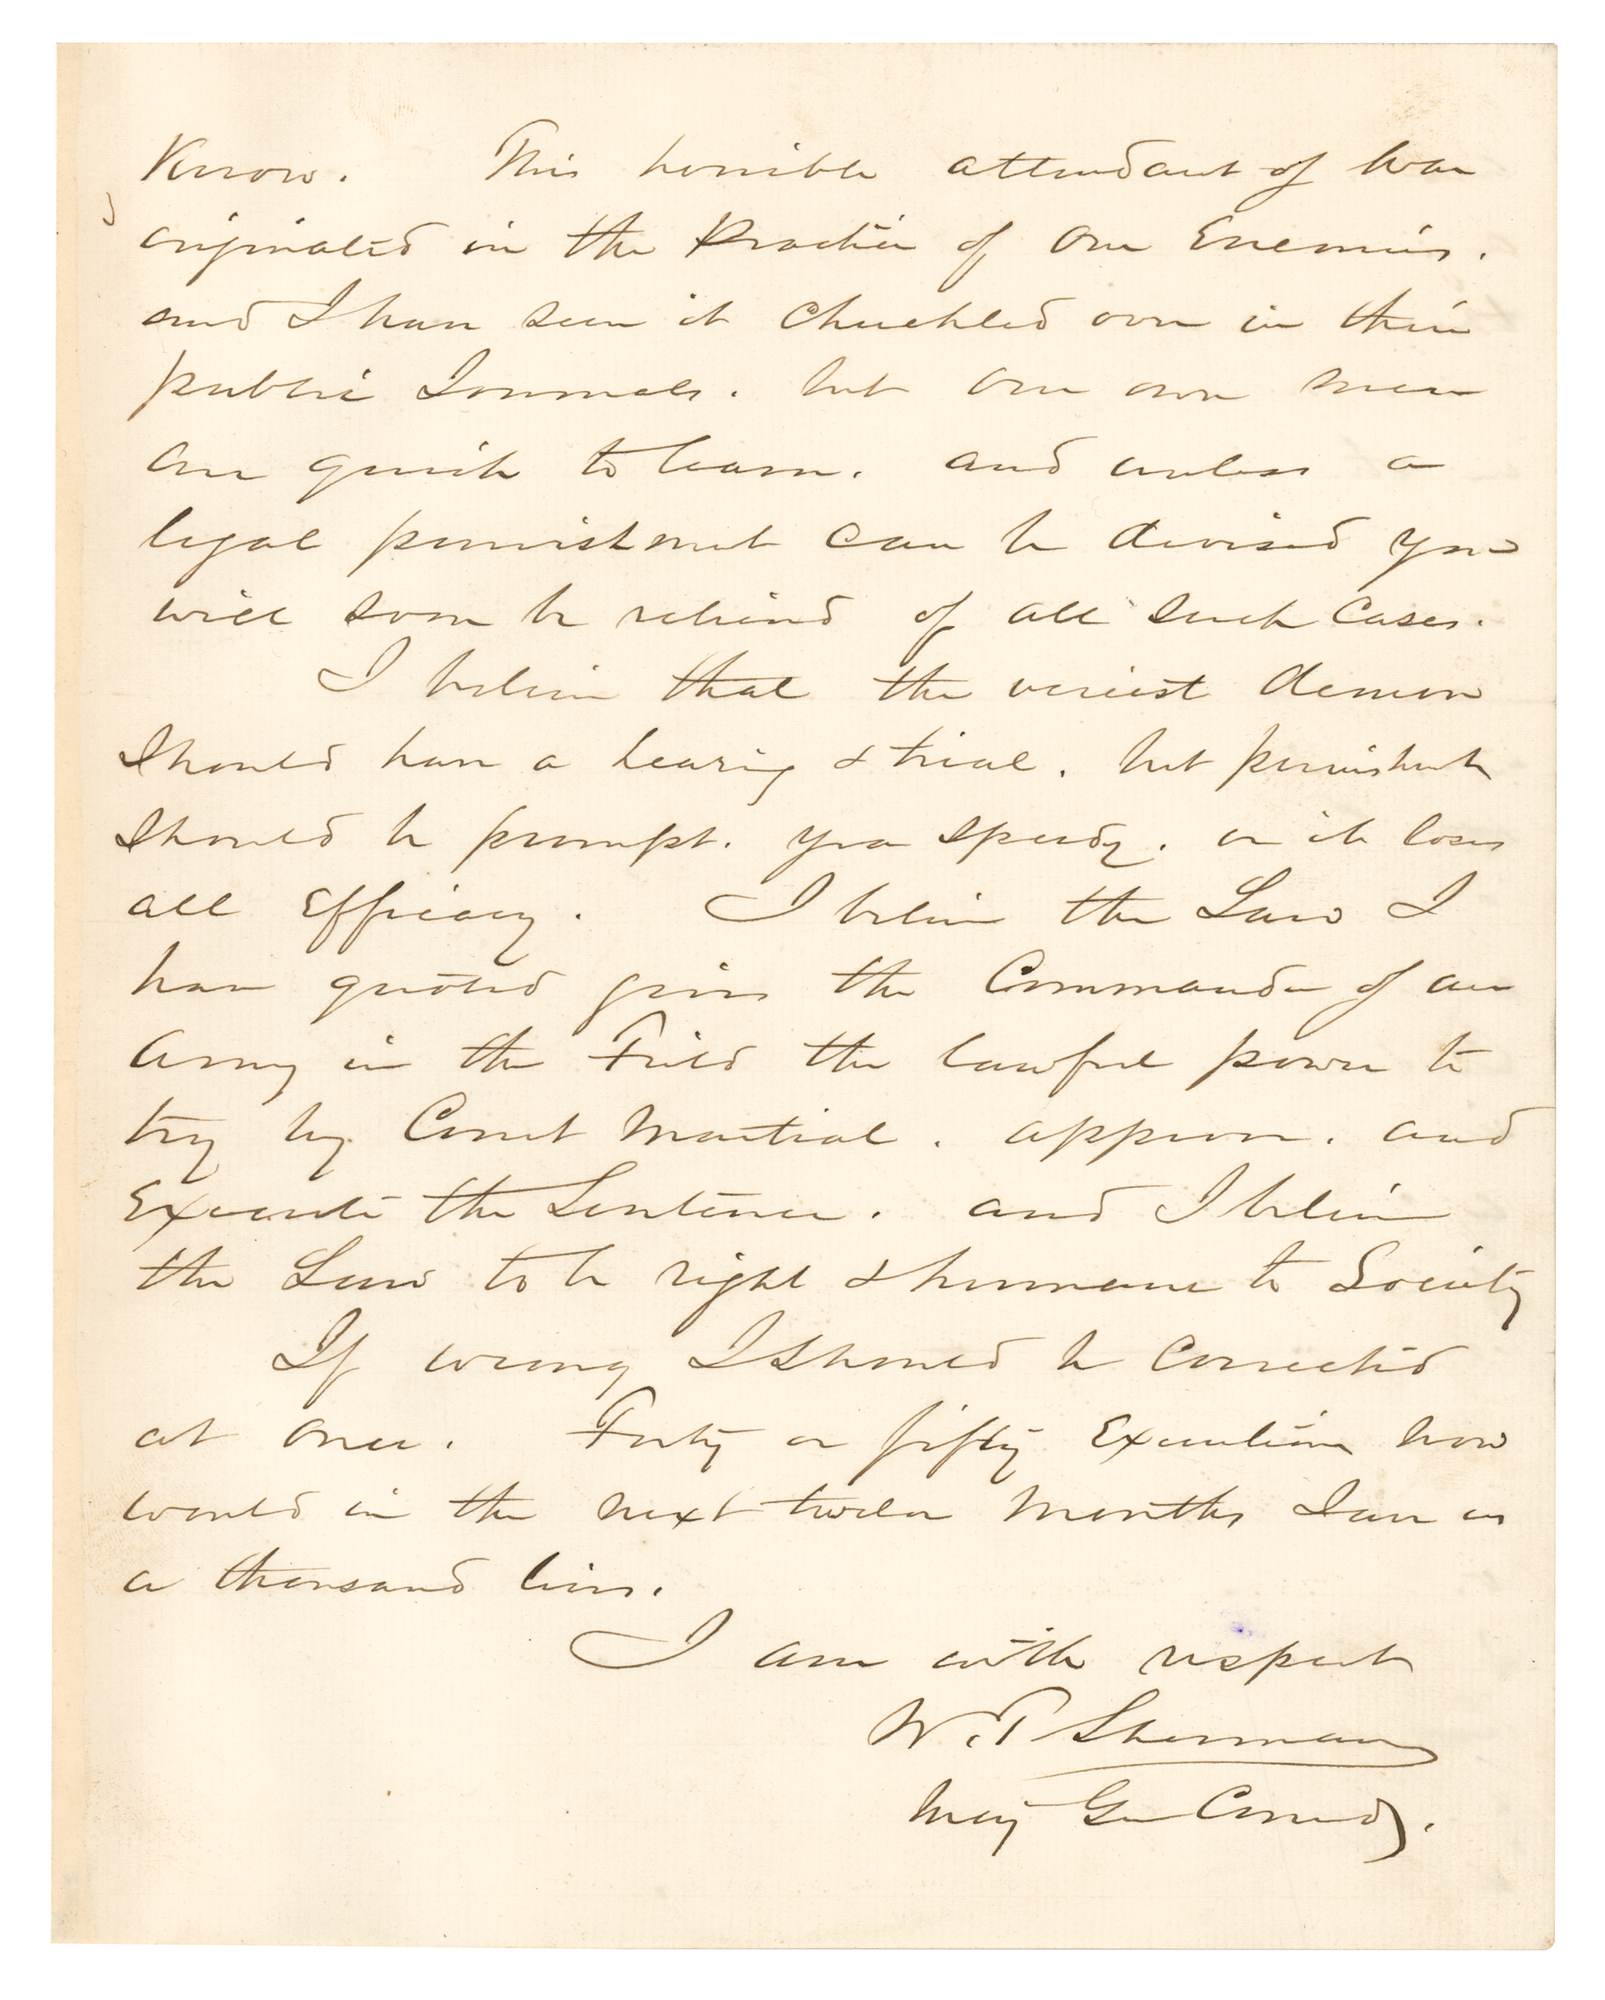 Know. This horrible attendant of War
originated in the Practice of our Enemies.
and I have seen it chuckled over in their
public Journals. but our own men
are quick to learn. and unless a
legal punishment can be devised you
will soon be relieved of all such Cases.
I believe that the veriest demon
Should have a hearing & trial. but punishmt
Should be prompt. yea speedy. or it loses
all Efficacy. I believe the Law I
have quoted gives the Commander of an
Army in the Field the lawful power to
try by Court Martial. approve. and
Execute the Sentence. and I believe
the Law to be right & humane to Society
If wrong I should be corrected
at once. Forty or fifty Executions now
would in the next twelve Months save us
a thousand lives.
I am with respect
W. T Sherman
Maj Gen Comdg.